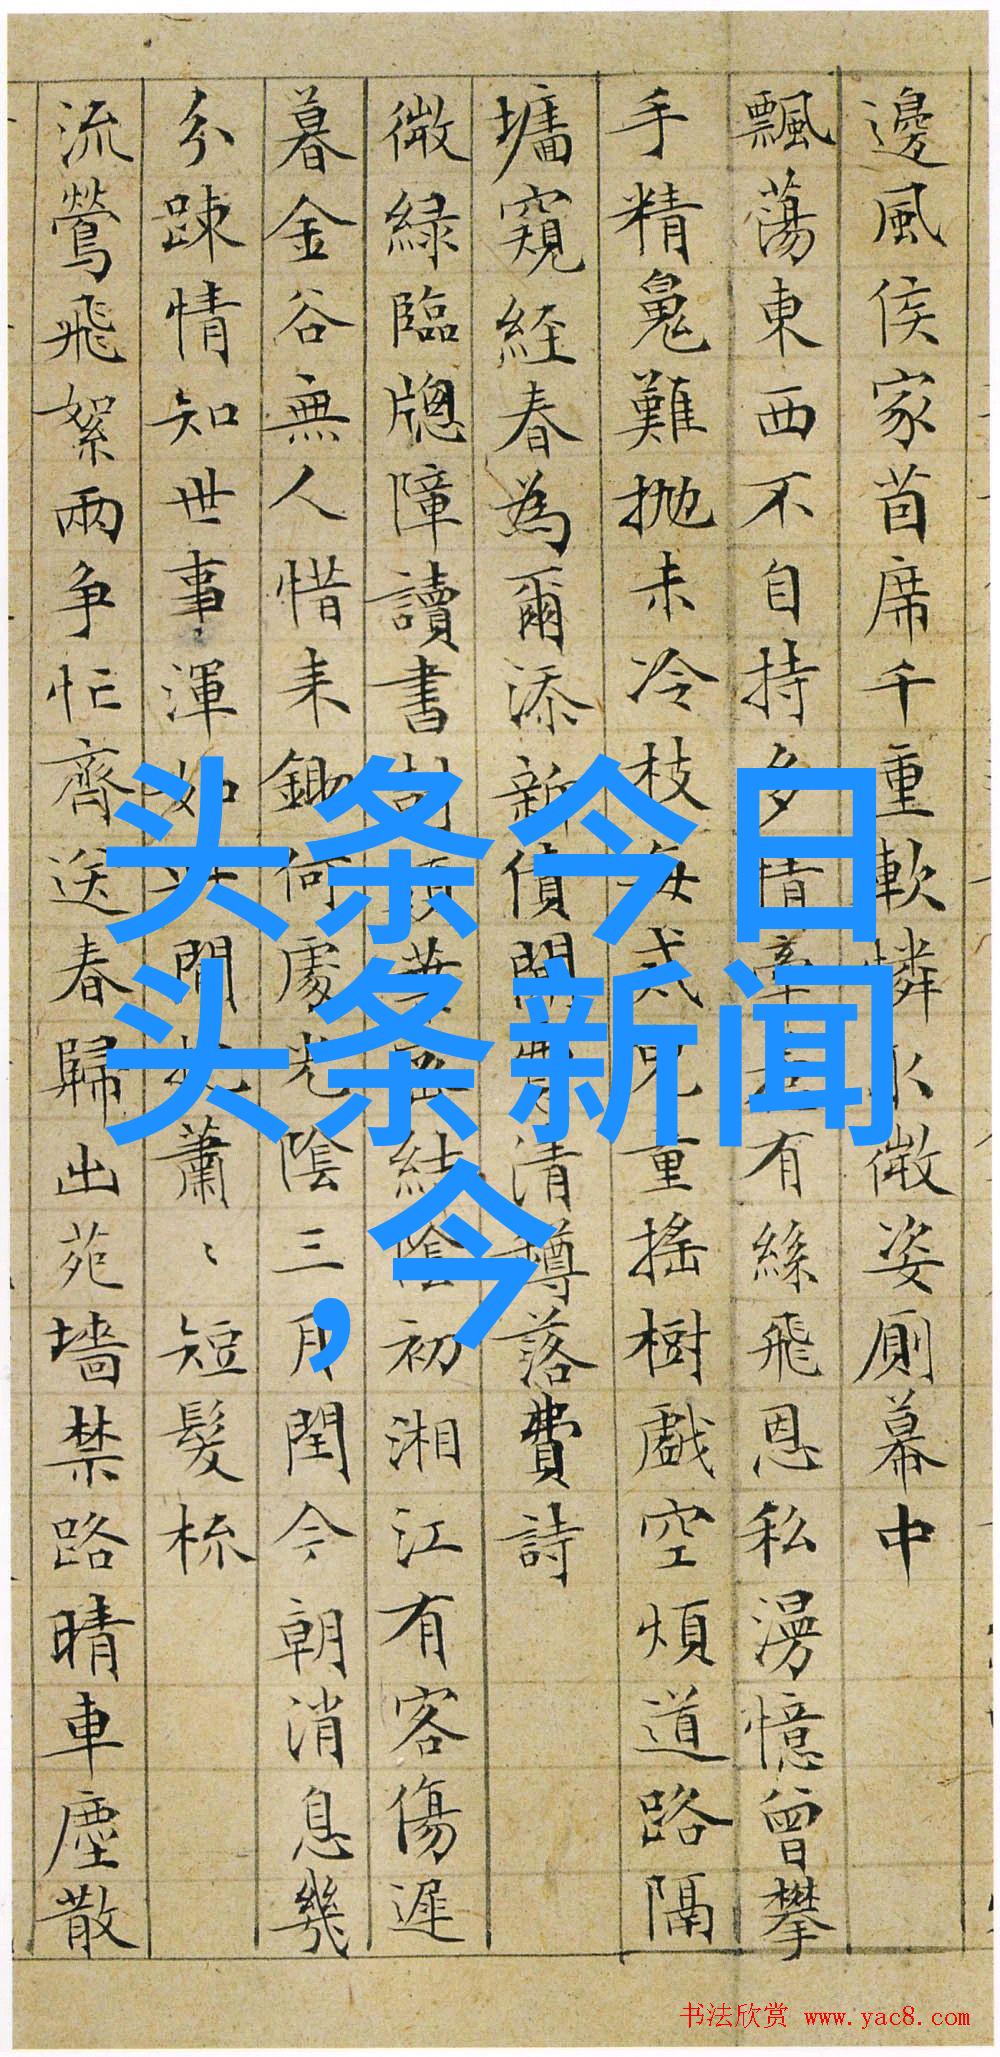 邊風侯家茵席千重軟憐水微姿廁幕中
飄蕩東西不自持多情牽有絲飛恩私漫憶曾攀
手精鬼難拋未冷枝每貳兄重搖樹戲空煩道路隔
墉窺經春為爾添新債開清樽落費詩
微綠臨牕障讀書結陰初湘江有客傷遲
暮金谷無人惜耒鋤何處光陰三月閏今朝消息幾
分踈情知世事渾如間蕭〻短髮梳
流鶯飛絮兩争忙齊送春歸出苑墻禁路晴車塵散
头条今日
头条新闻
,今
书法欣赏 www.yac8.com